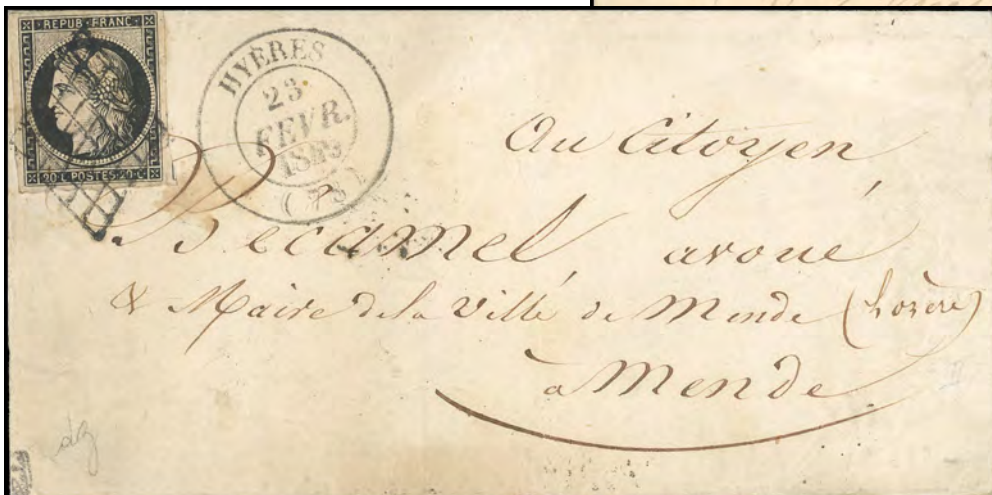 REPUB. FRANC.
20 C POSTES 20 C
HYÈRES
23
FEVR.
(78)
Au Citoyen
Becamel, avoué
& Maire de la Ville de Mende (Lozère)
à Mende